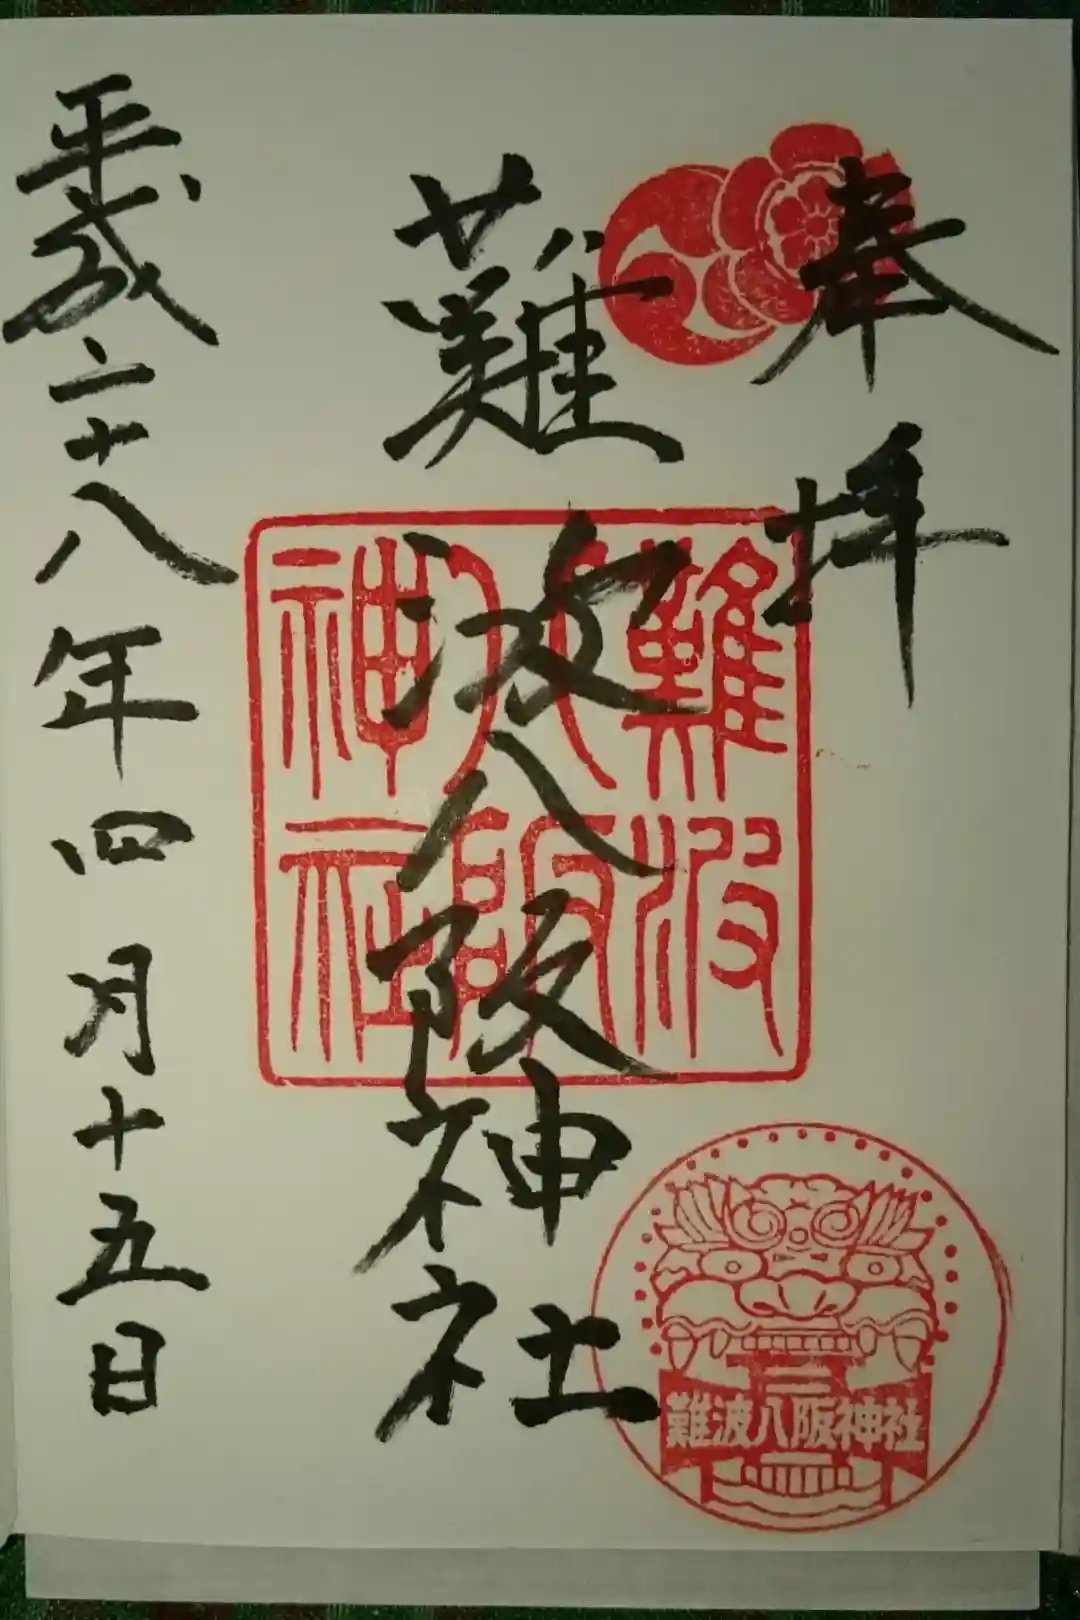 奉拝
難波八阪神社
平成二十八年四月十五日
難波
八阪
神社
難波八阪神社